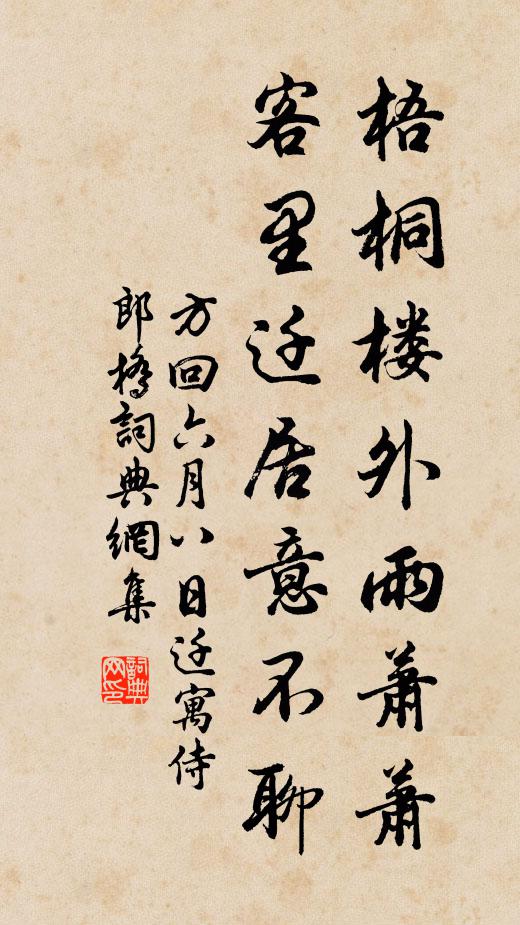 梧桐楼外雨萧萧
客里迁居意不聊
方回六月八日迁寓侍
郎桥詞典網集
詞典网印